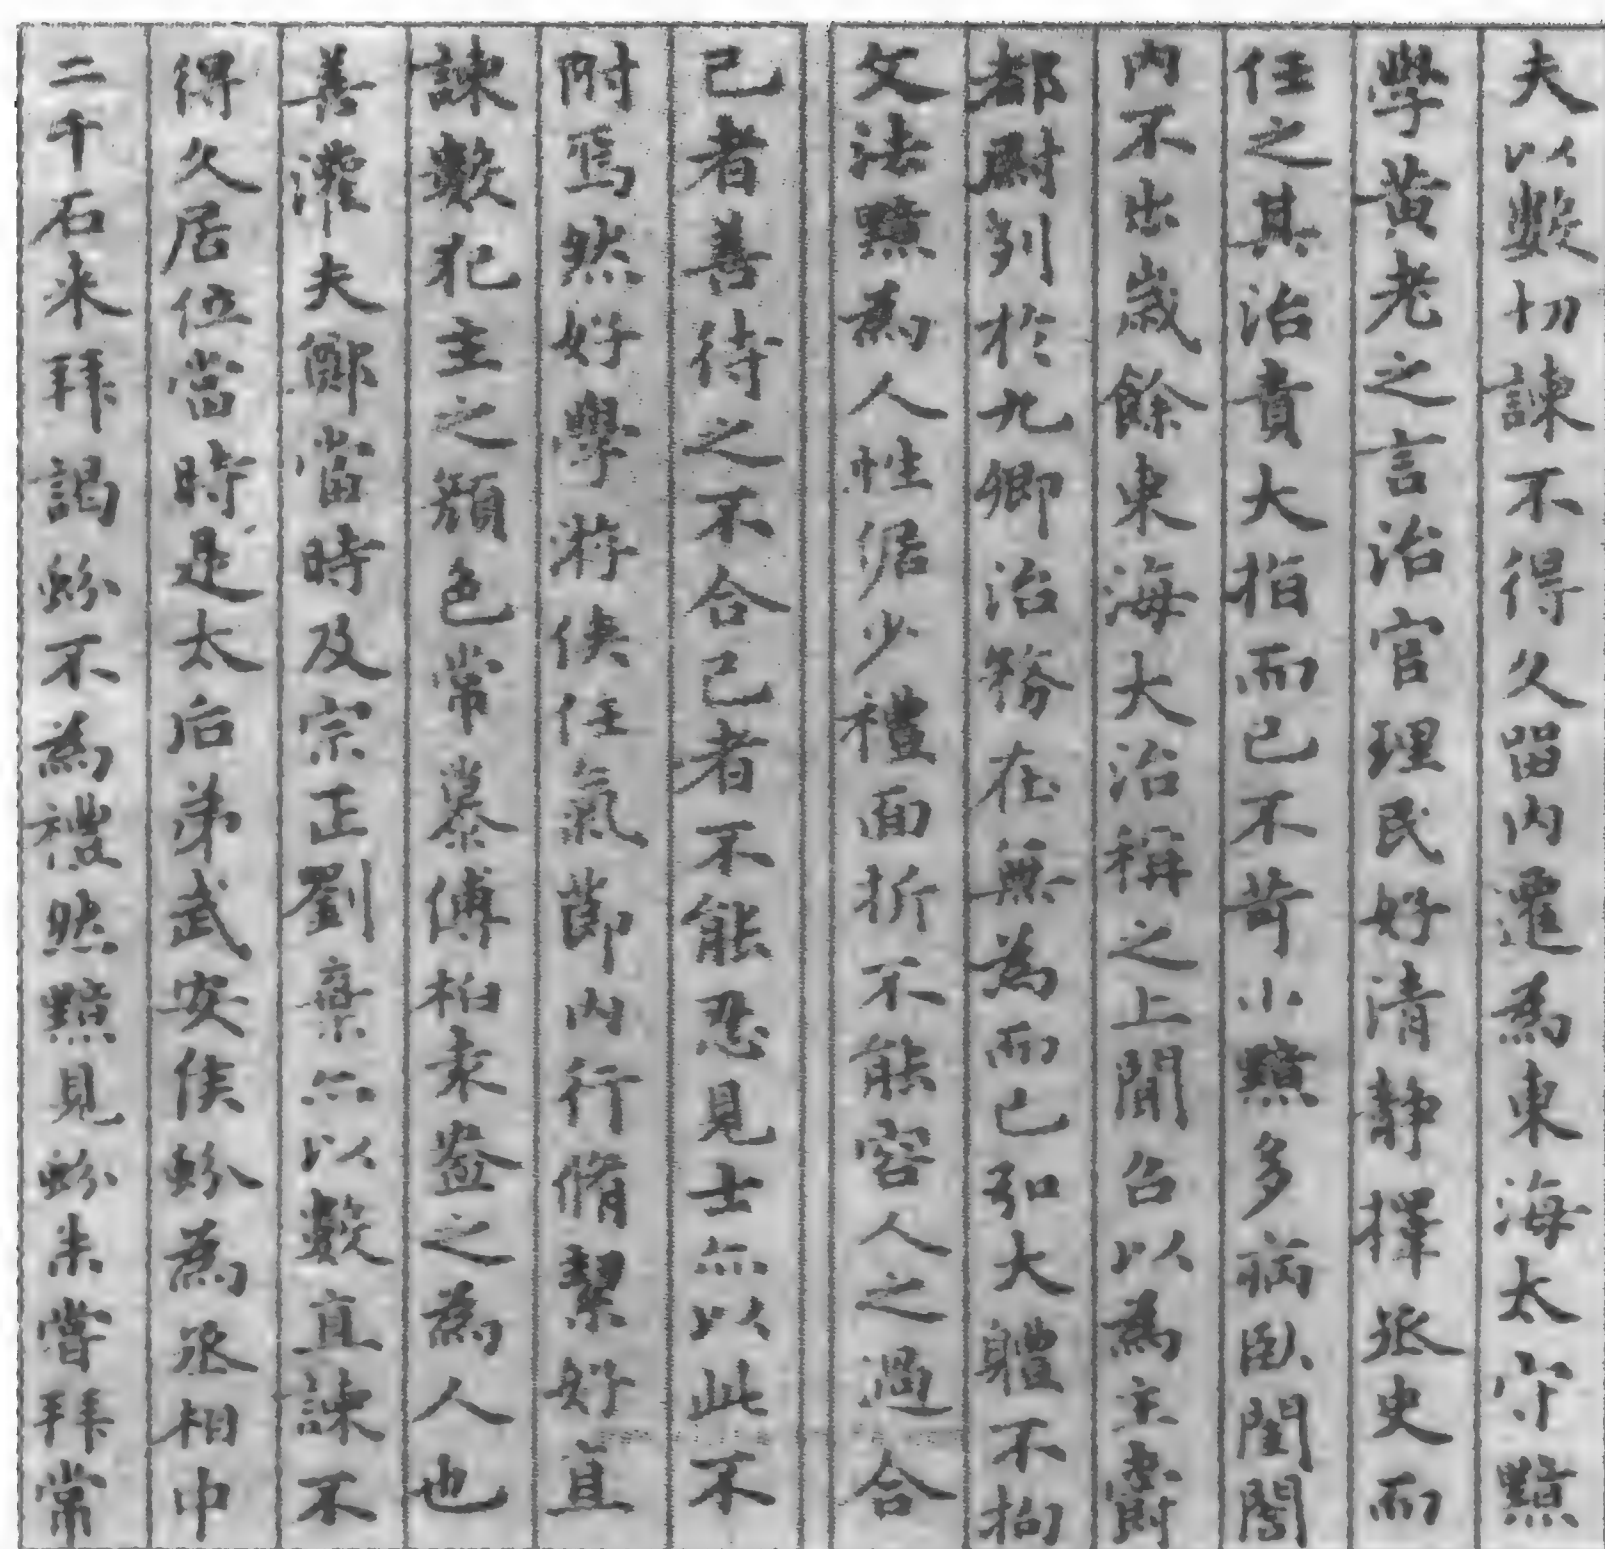 夫以數切諫不得久留内遷為東海太守黯
學黃老之言治官理民好清静擇丞史而
任之其治責大指而已不苛小黯多病臥閨閤
内不出歲餘東海大治稱之上聞召以為主爵
都尉列於九卿治務在無為而已弘大體不拘
文法黯為人性倨少禮面折不能容人之過合
己者善待之不合己者不能忍見士亦以此不
附焉然好學游俠任氣節内行脩絜好直
諫數犯主之顏色常慕傅柏袁盎之為人也
善灌夫鄭當時及宗正劉棄亦以數直諫不
得久居位當時是太后弟武安侯蚡為丞相中
二千石来拜謁蚡不為禮然黯見蚡未嘗拜常